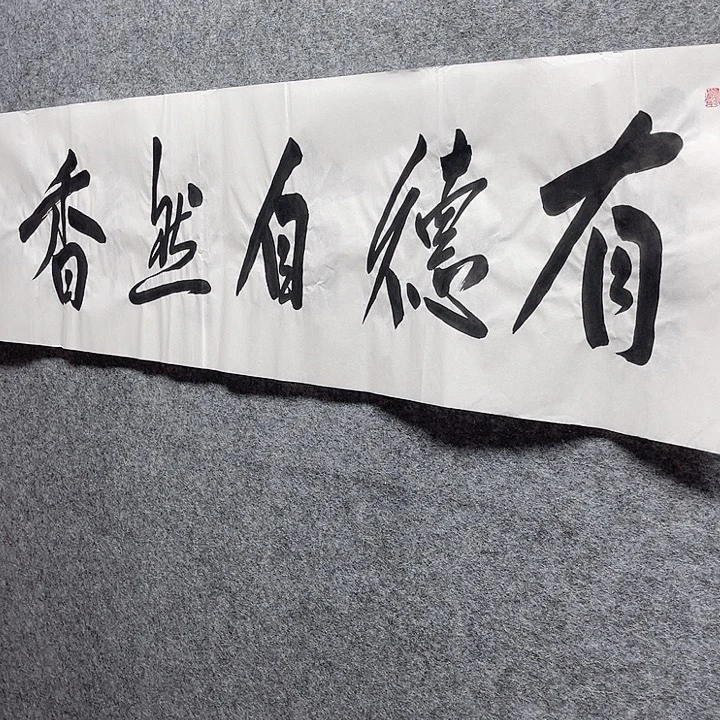 有德自然香